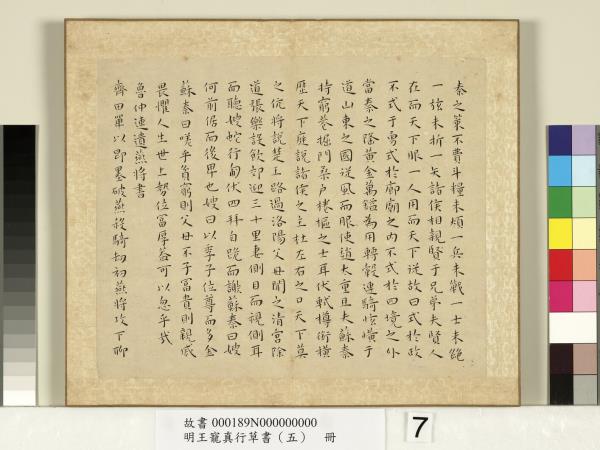 秦之策不費斗糧未煩一兵未戰一士未絕
一弦未折一矢諸侯相親賢于兄弟夫賢人
在而天下服一人用而天下從故曰式於政
不式于勇式於廊廟之內不式於四境之外
當秦之隆黃金萬鎰為用轉轂連騎炫熿于
道山東之國從風而服使趙大重且夫蘇秦
特窮巷掘門桑戶棬樞之士耳伏軾撙銜橫
歷天下庭說諸侯之主杜左右之口天下莫
之伉將說楚王路過洛陽父母聞之清宮除
道張樂設飲郊迎三十里妻側目而視側耳
而聽嫂蛇行匍伏四拜自跪而謝蘇秦曰嫂
何前倨而後卑也嫂曰以季子位尊而多金
蘇秦曰嗟乎貧窮則父母不子富貴則親戚
畏懼人生世上勢位富厚蓋可以忽乎哉
魯仲連遺燕將書
齊田單以即墨破燕殺騎劫初燕將攻下聊
故書 000189N000000000
明王寵真行草書（五） 冊
7